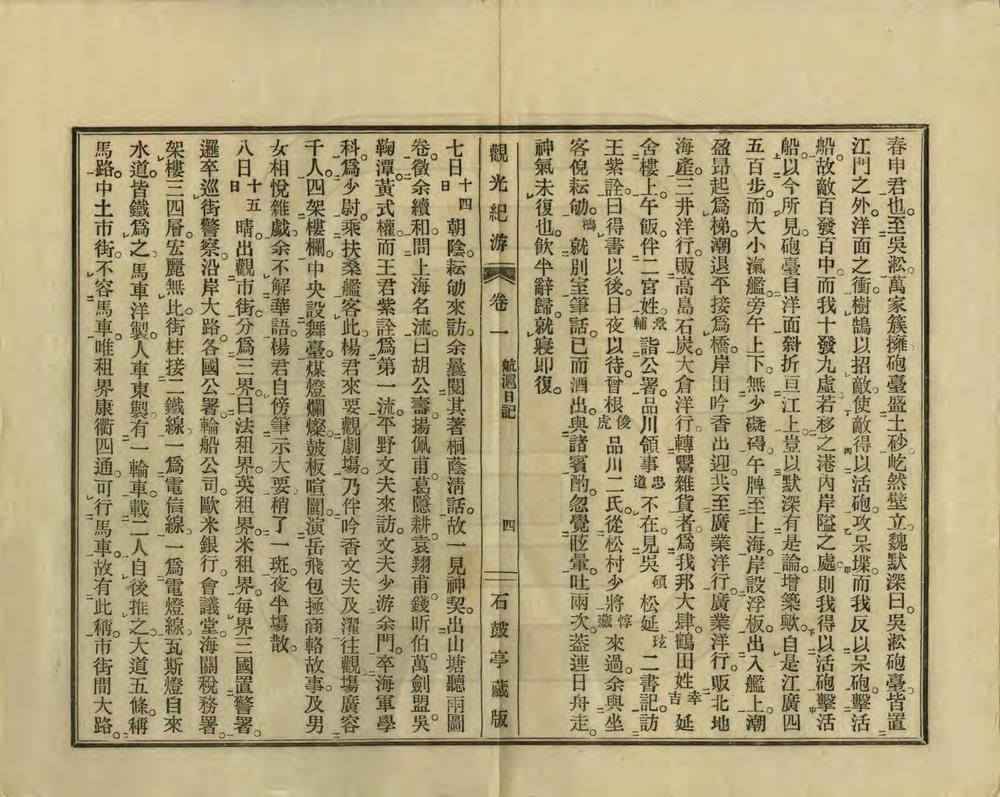 春申君也。至吳淞。萬家簇擁。砲臺盛土砂。屹然壁立。魏默深曰。吳淞砲臺。皆置
江門之外。洋面之衝。樹鵠以招敵。使敵得以活砲攻呆堞。而我反以呆砲擊活
船。故敵百發百中。而我十發九虛。若移之港內岸隘之處。則我得以活砲擊活
船。以今所見。砲臺自洋面斜折。亘江上。豈以默深有是論。增築歟。自是江廣四
五百步。而大小瀛艦。旁午上下。無少礙碍。午牌至上海。岸設浮板。出入艦上。潮
盈昂起爲梯。潮退平接爲橋。岸田吟香出迎。共至廣業洋行。廣業洋行。販北地
海產。三井洋行。販高島石炭。大倉洋行。轉鬻雜貨者。爲我邦大肆。鶴田姓幸吉延
舍樓上。午飯。伴二宮姓輔詣公署。品川領事忠道不在。見吳碩松延玹二書記。訪
王紫詮。曰得書以後。日夜以待。曾根俊虎品川二氏。從松村少將惇藏來過。余與坐
客倪耘劬鴻就別室筆話。已而酒出。與諸賓酌。忽覺眩暈。吐兩次。蓋連日舟走。
神氣未復也。飮半辭歸。就寢卽復。
觀光紀游 卷一 航滬日記 四 石鼓亭藏版
七日十四日朝陰。耘劬來訪。余曩閱其著桐蔭淸話。故一見神契。出山塘聽雨圖
卷。徵余續和。問上海名流。曰胡公壽。揚佩甫。葛隱耕。袁翔甫。錢昕伯。萬劍盟。吳
鞠潭。黃式權。而王君紫詮爲第一流。平野文夫來訪。文夫少游余門。卒海軍學
科。爲少尉。乘扶桑艦客此。楊君來要觀劇塲。乃伴吟香文夫及濯往觀。塲廣容
千人。四架樓欄。中央設舞臺。煤燈爛燦。鼓板喧闐。演岳飛包拯商輅故事。及男
女相悅雜戯。余不解華語。楊君自傍筆示大要。稍了一斑。夜半塲散。
八日十五日晴。出觀市街。分爲三界。曰法租界。英租界。米租界。每界三國置警署。
邏卒巡街警察。沿岸大路。各國公署。輪船公司。歐米銀行。會議堂。海關稅務署。
架樓三四層。宏麗無比。街柱接二鐵線。一爲電信線。一爲電燈線。瓦斯燈自來
水道。皆鐵爲之。馬車洋製。人車東製。有一輪車載二人。自後推之。大道五條。稱
馬路。中土市街。不容馬車。唯租界康衢四通。可行馬車。故有此稱。市街間大路。